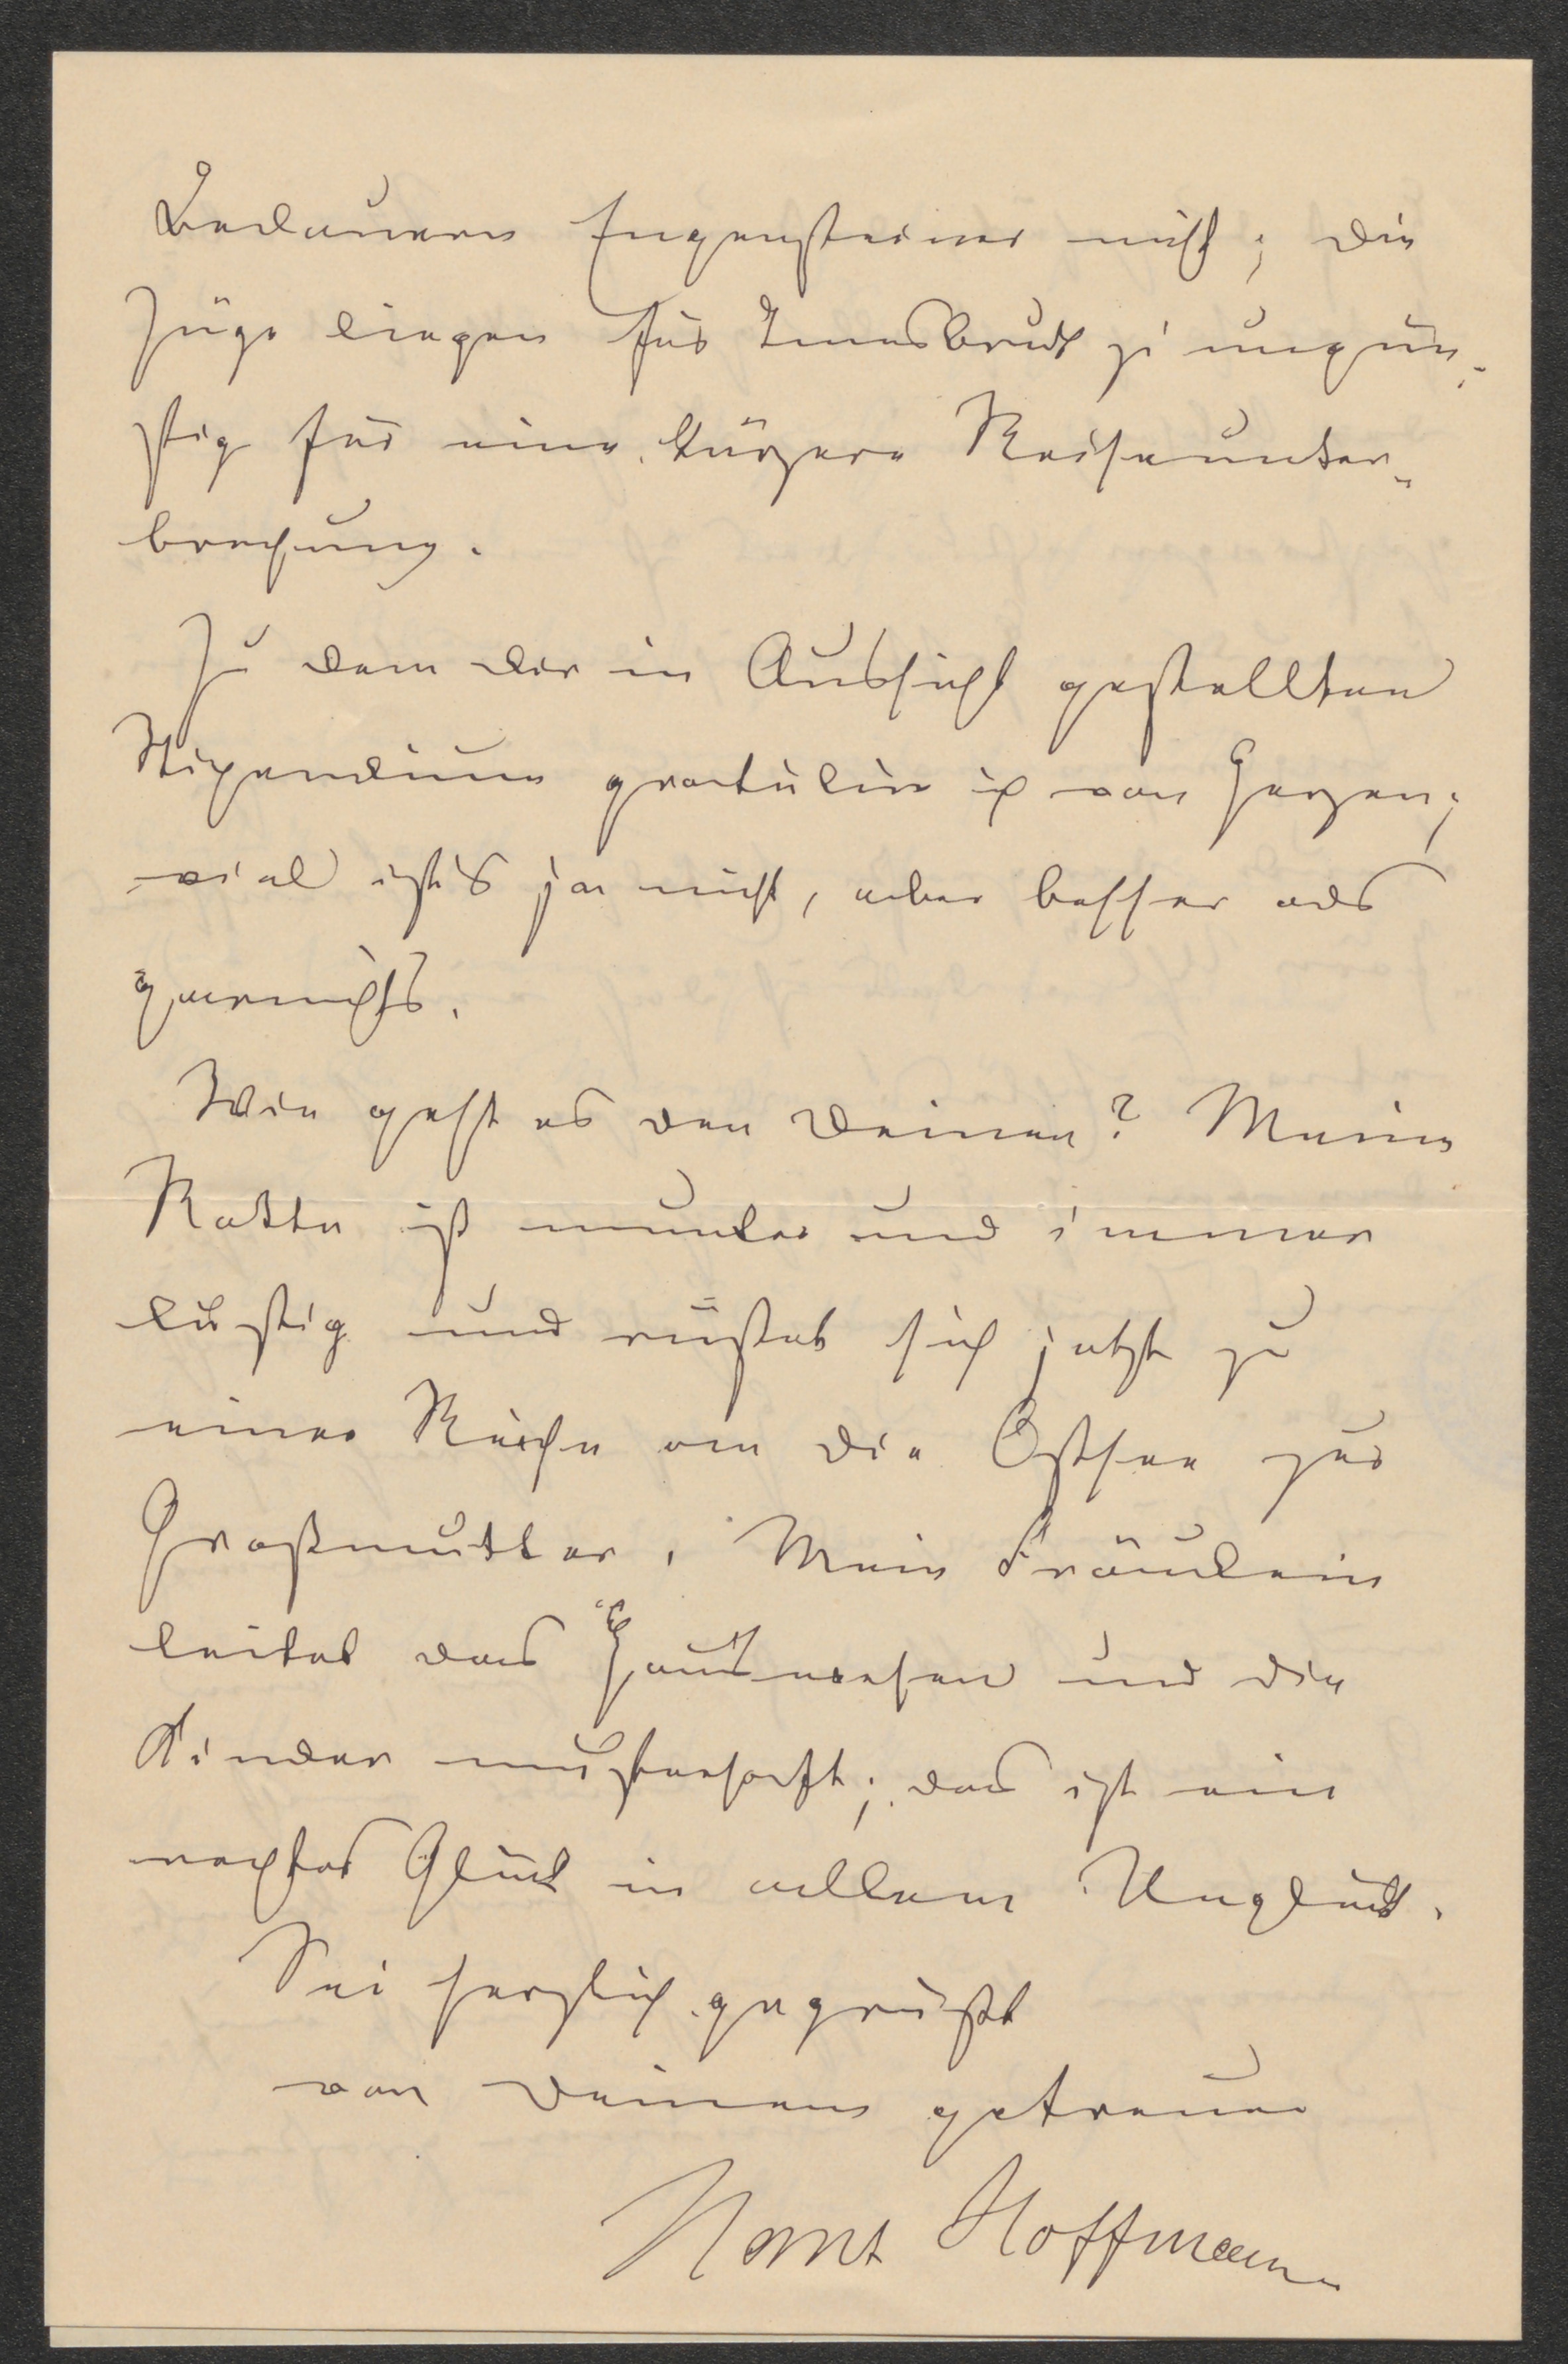 Bedauern Engensteiner nicht; die
Züge liegen für Innsbruck zu ungün-
stig für eine kürzere Reiseunter-
brechung.
Zu dem Dir in Aussicht gestellten
Stipendium gratulire ich von Herzen;
viel ist's ja nicht, aber besser als
garnichts.
Wie geht es den Deinen? Meine
Rotte ist munter und immer
lustig und rüstet sich jetzt zu
einer Reise an die Ostsee zur
Großmutter. Mein Fräulein
leitet das Hauswesen und die
Kinder musterhaft; das ist ein
rechtes Glück in allem Unglück.
Sei herzlich gegrüßt
von Deinem getreuen
Hans Hoffmann